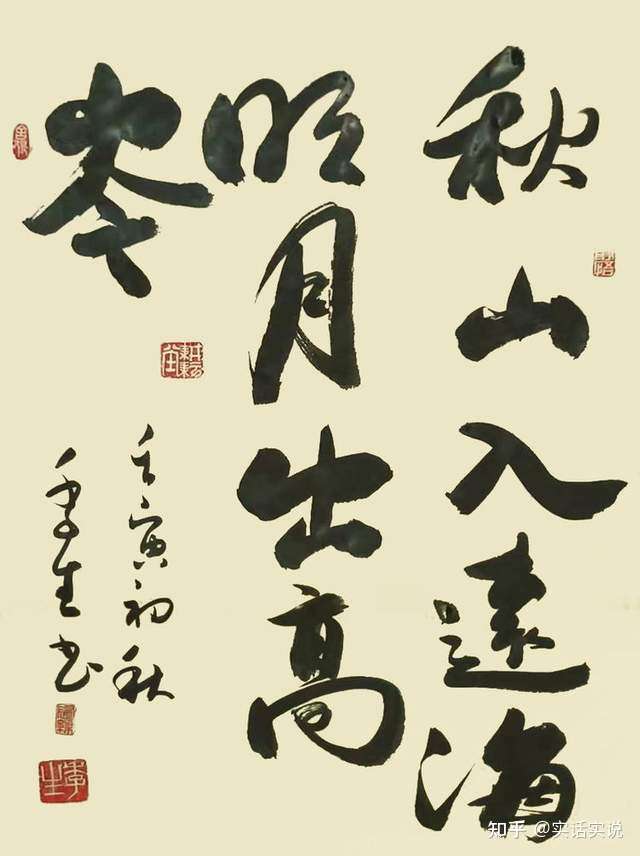 秋山入遠海
明月出高
岑
壬寅初秋
季生书
季生
知乎 @实话实说